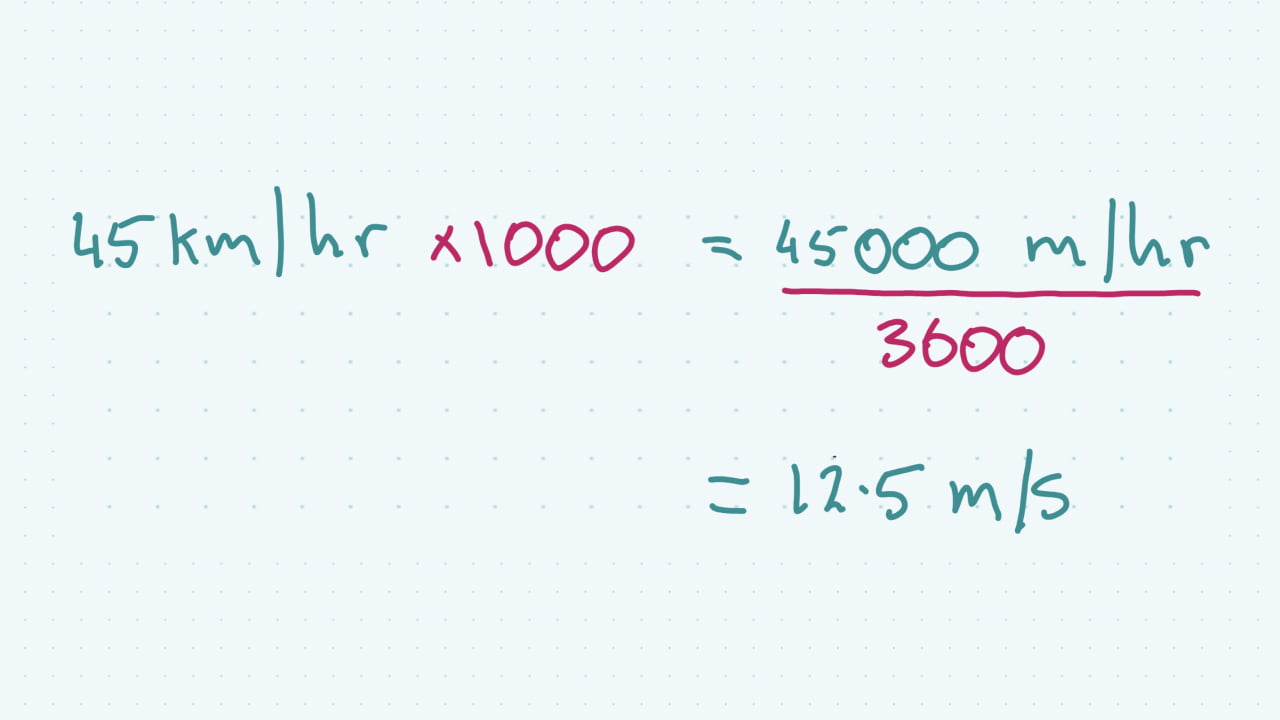 45 km/hr ×1000 = 45000 m/hr
3600
= 12.5 m/s